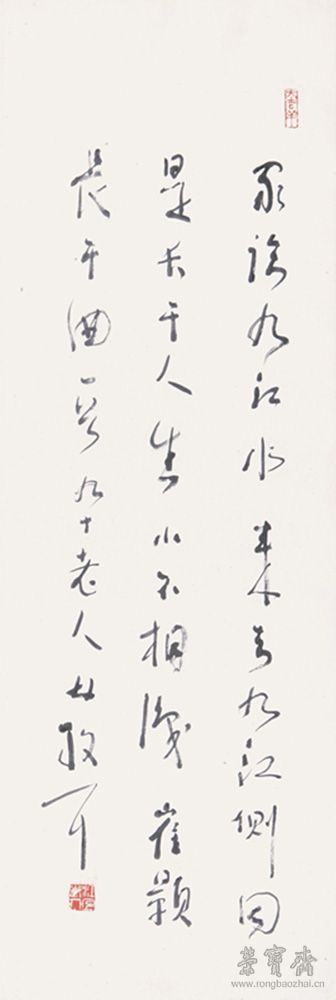 家临九江水來去九江侧同
是长干人生小不相識崔顥
長干曲一首九十老人林散耳
榮寶齋
www.rongbaozhai.cn